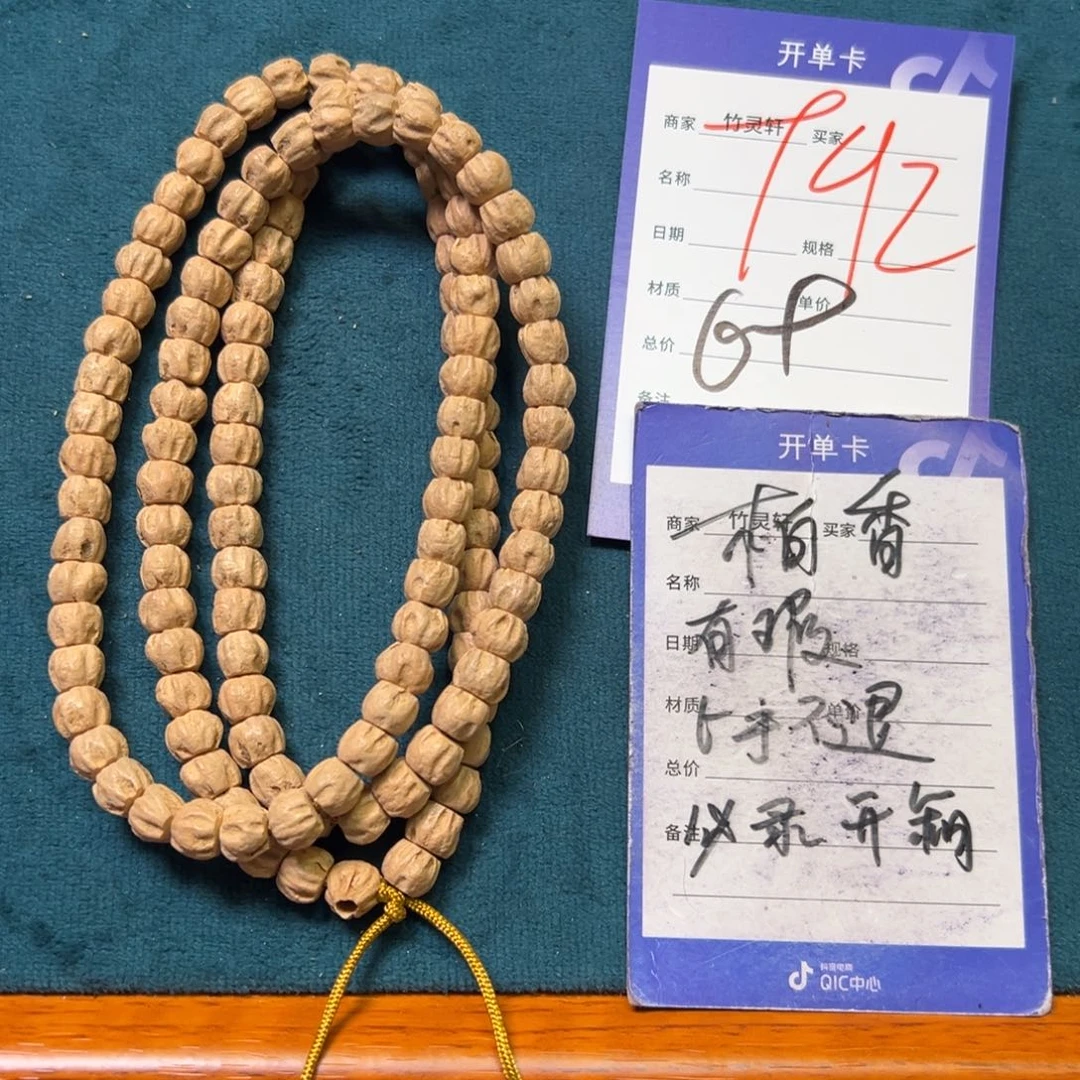 开单卡
商家 竹灵轩 买家
名称
日期 规格
材质 单价
总价
备注
GP
开单卡
商家 竹灵轩 买家
名称
日期 规格
材质 单价
总价
备注
柏香
有瑕
卜手不退
必录开箱
抖音电商
QIC中心